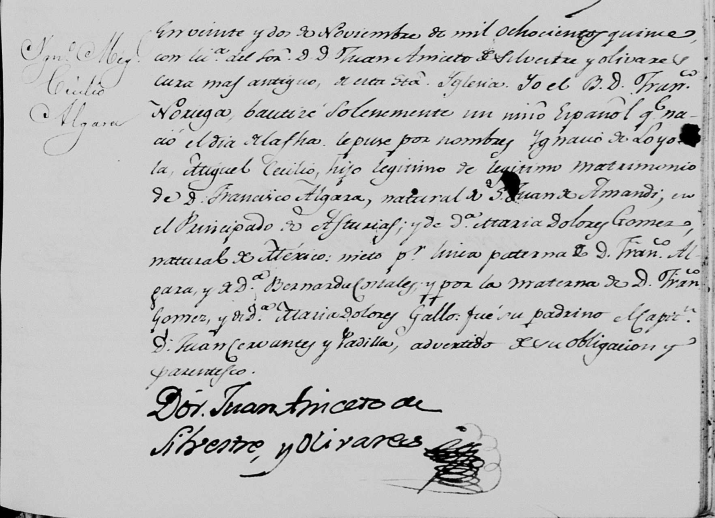 Ygn.º Mig.l
Cecilio
Algara
En veinte y dos de Noviembre de mil ochocientos quince,
con lic.ª del Sor. D. D. Juan Aniceto de Silvestre y olivares
cura mas antiguo, de esta Sta. Iglesia. Yo el B. D. Fran.co
Noriega, bautizé Solemnemente un niño Español q.e na-
ció el dia de la fha. le puse por nombres Ygnacio de Loyo-
la, Miguel Cecilio, hijo legitimo de legitimo matrimonio
de D. Francisco Algara, natural de S. Juan de Amandi, en
el Principado de Asturias; y de D.ª Maria Dolores Gomez,
natural de México: nieto p.r linea paterna de D. Fran.co Al-
gara, y de D.ª Bernarda y por la materna de D. Fran.co
Gomez, y de D.ª Maria Dolores Gallo: fué su padrino el Cap.n
D. Juan Cervantes y Padilla, advertido de su obligacion y
parentesco.
Dór. Juan Aniceto de
Silvestre, y Olivares